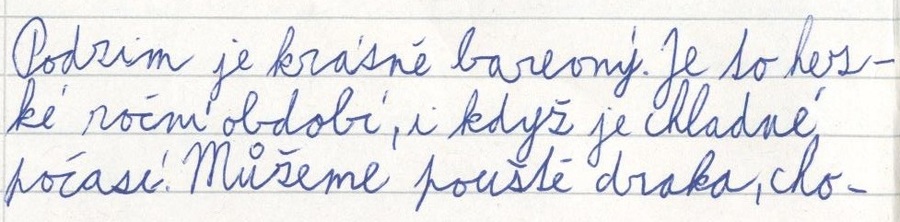 Podzim je krásně barevný. Je to hez-
ké roční období, i když je chladné
počasí. Můžeme pouště draka, cho-